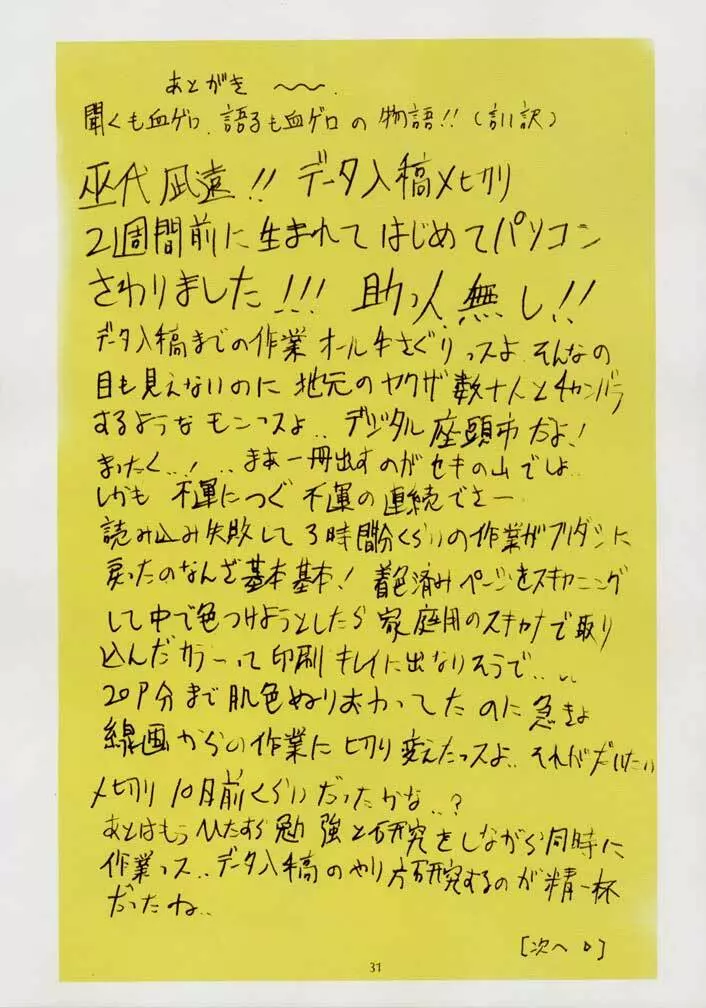 あとがき 〜〜.
聞くも血ゲロ、語るも血ゲロの物語!!(言い訳)
巫代凪遠!! データ入稿〆切り
2週間前に生まれてはじめてパソコン
さわりました!!! 助っ人無し!!
データ入稿までの作業オール手さぐりっスよ、そんなの
目も見えないのに地元のヤクザ数十人とチャンバラ
するようなモンっスよ.. デジタル座頭市だよ!
まったく..! ..まあ一冊出すのがセキの山でしょ..
しかも不運につぐ不運の連続でさー
読み込み失敗して3時間分くらいの作業がフリダシに
戻ったのなんざ基本基本! 着色済みページをスキャニング
して中で色つけようとしたら家庭用のスキャナで取り
込んだカラーって印刷キレイに出なりそうで....
20P分まで肌色ぬりおわってたのに急きょ
線画からの作業に切り変えたっスよ.. それがだいたい
〆切り10日前くらいだったかな..?
あとはもうひたすら勉強と研究をしながら同時に
作業っス.. データ入稿のやり方研究するのが精一杯
だったね..
[次へ▷]
31